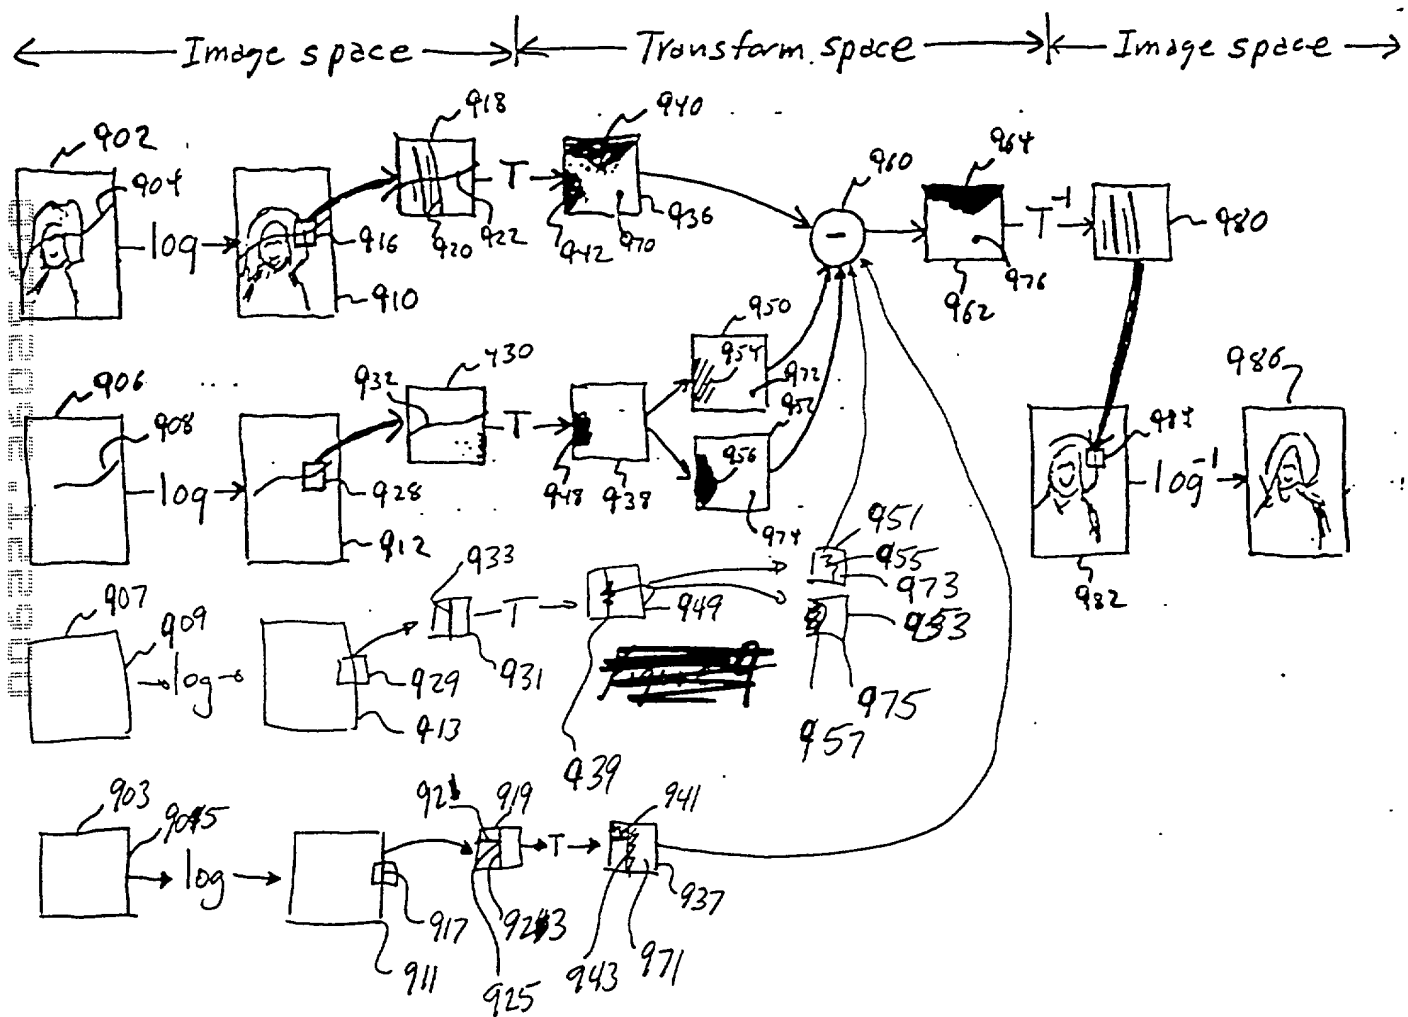 Image space Transform space Image space
902
904
log
916
910
918
920
922
T
940
942
970
936
960
-
964
962
976
T-1
980
906
908
log
928
912
932
430
T
948
938
950
954
972
952
956
974
984
982
log-1
986
907
909
log
929
913
933
931
T
949
939
951
955
973
953
975
957
903
905
log
917
911
921
919
923
925
T
941
943
971
937